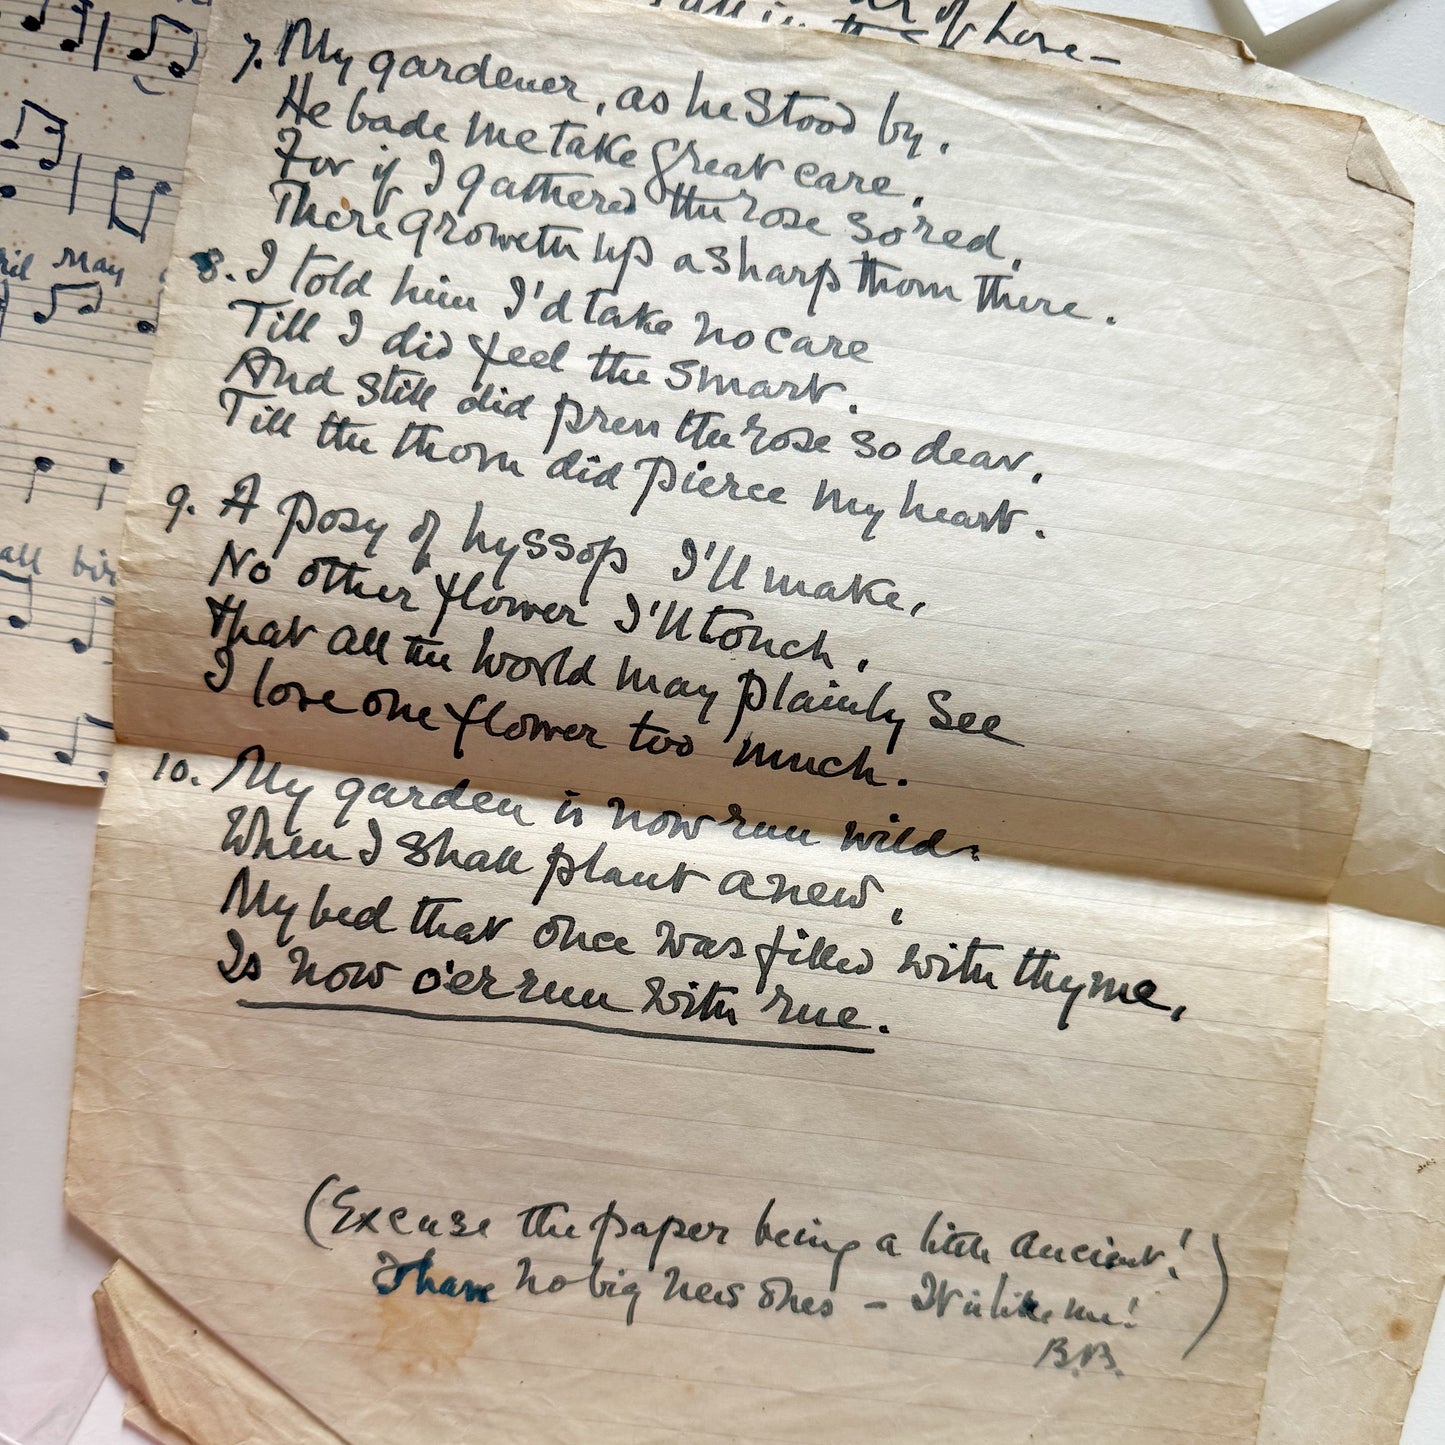 of Love –
in the
7. My gardener, as he stood by.
He bade me take great care,
For if I gathered the rose so red,
There groweth up a sharp thorn there.
8. I told him I'd take no care
Till I did feel the smart.
And still did press the rose so dear,
Till the thorn did pierce my heart.
9. A posy of hyssop I'll make,
No other flower I'll touch,
That all the world may plainly see
I love one flower too much.
10. My garden is now run wild.
When I shall plant anew,
My bed that once was filled with thyme,
Is now o'errun with rue.
(Excuse the paper being a little ancient!
I have no big new ones – It is like me!)
B.B.
May
all